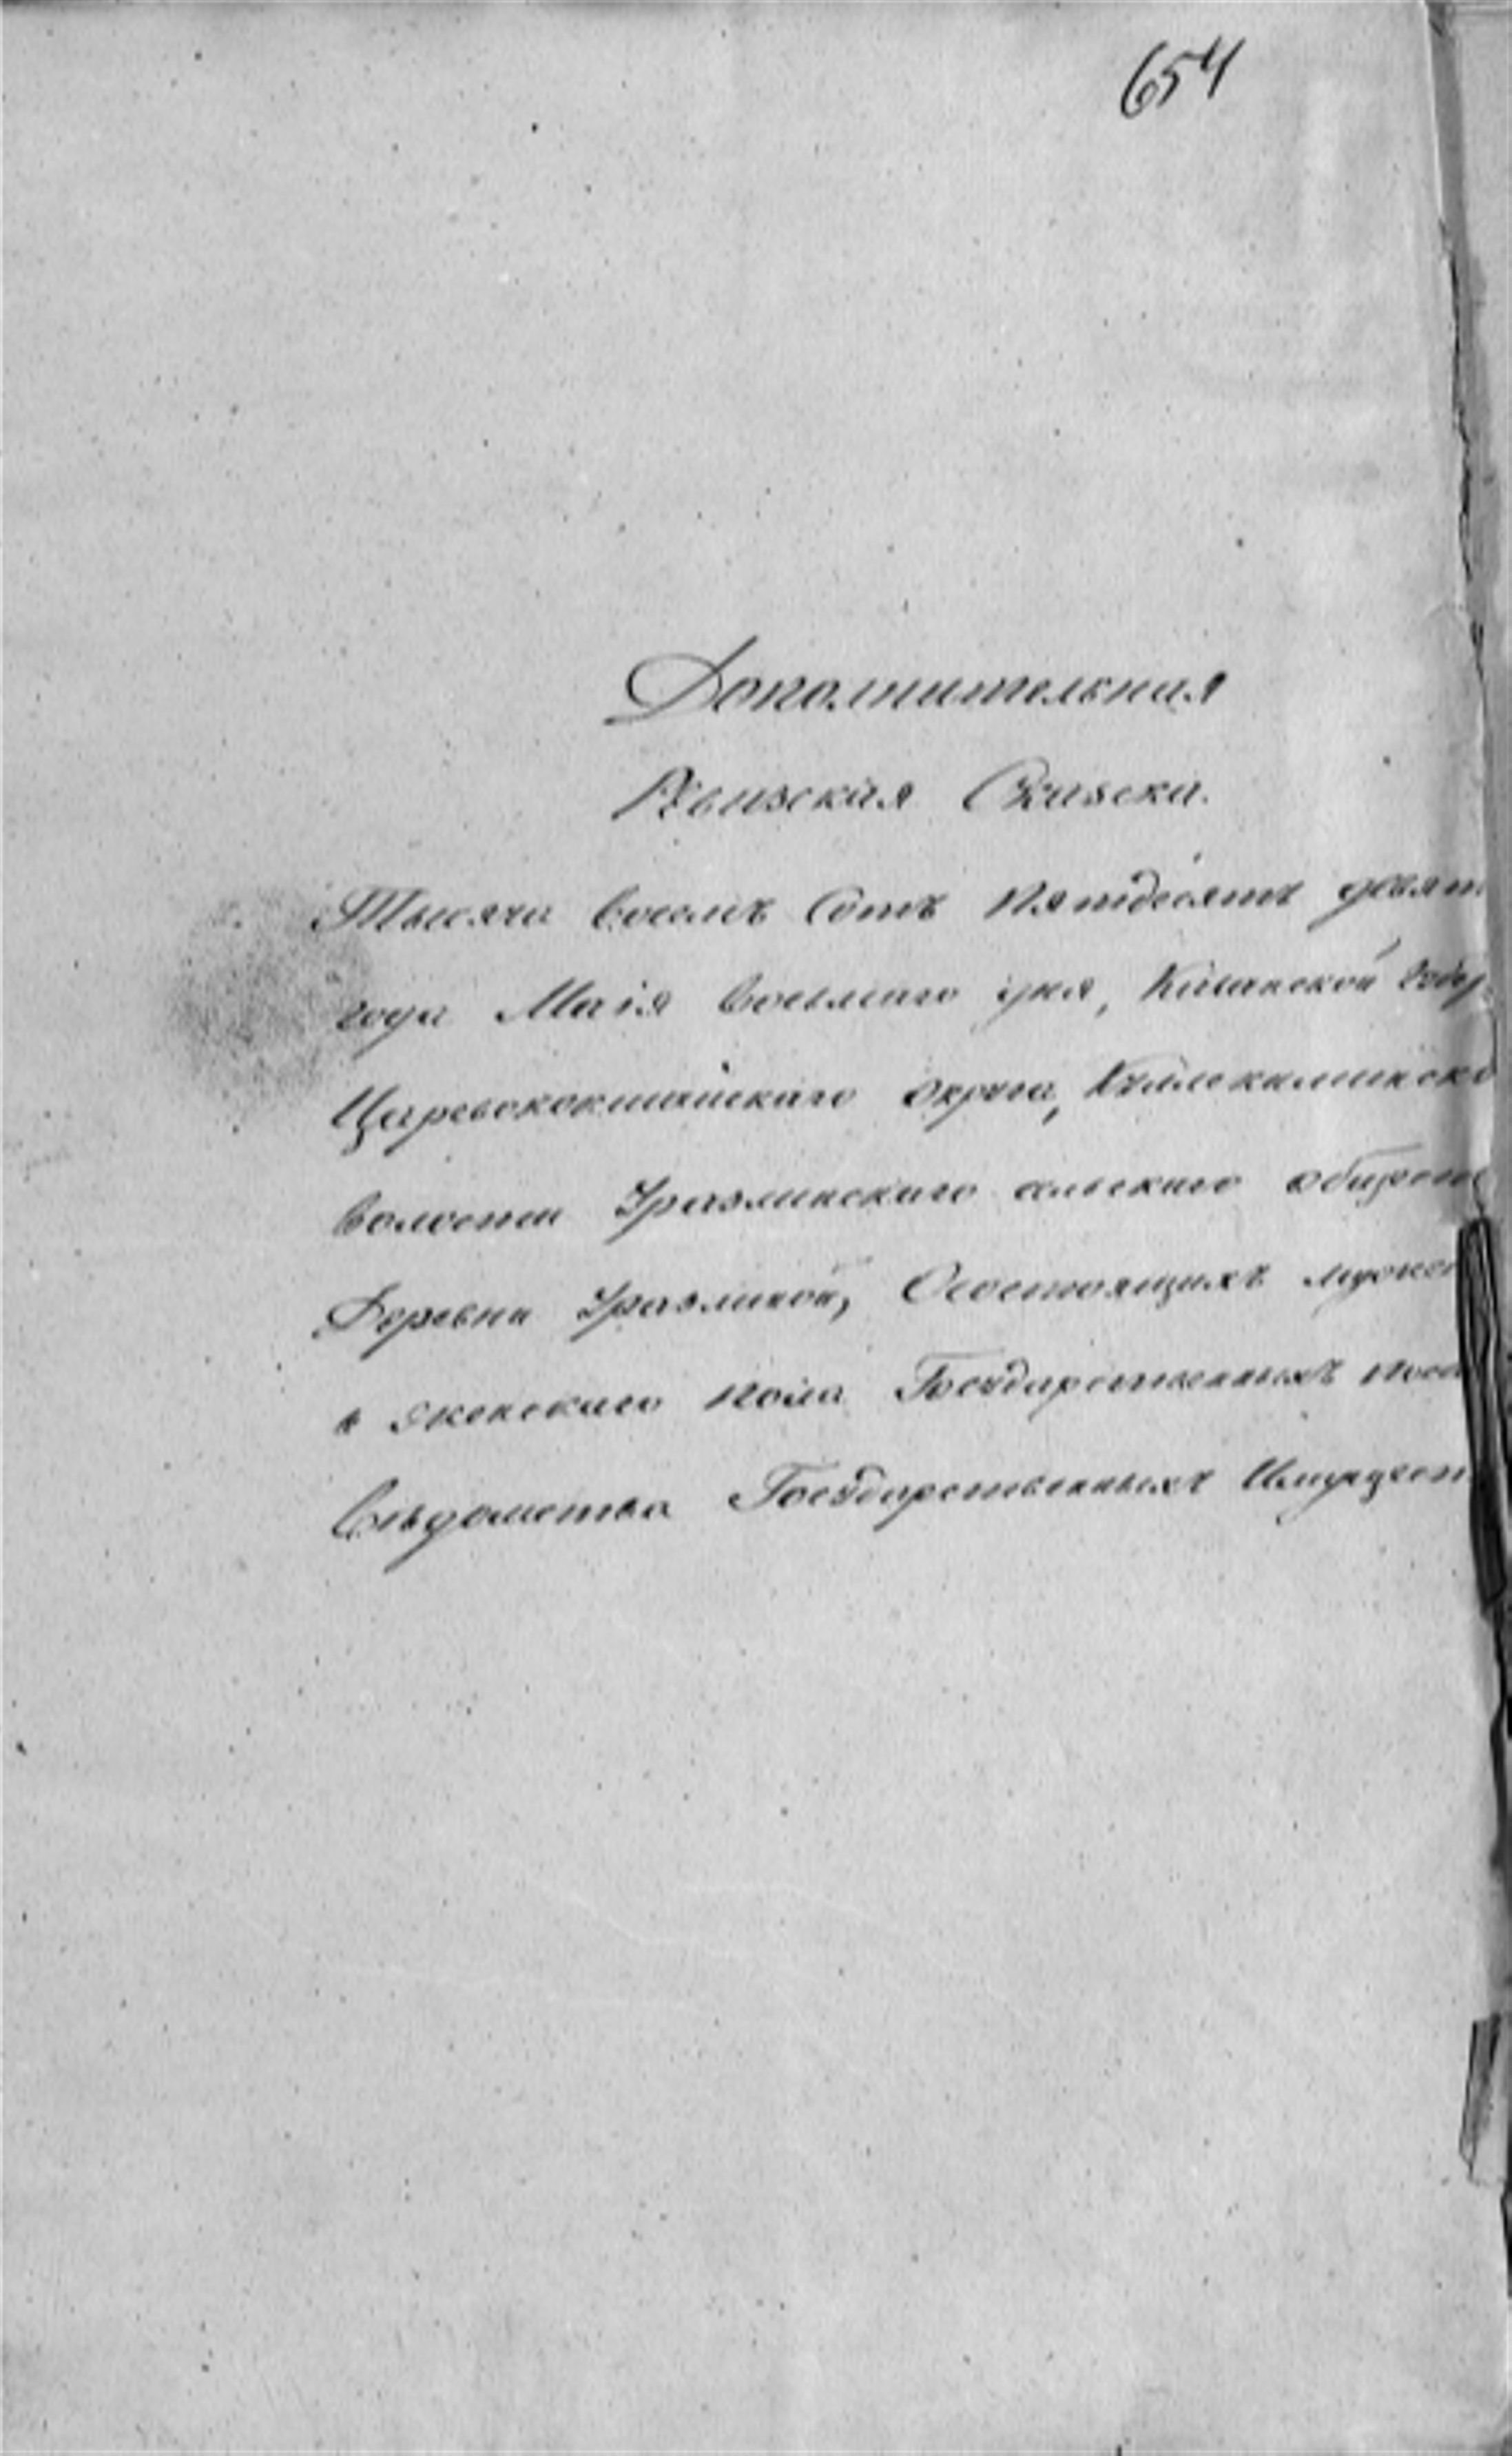 654
Дополнительная
Ревизская Сказка.
Тысяча восемъ Сотъ Пятдесятъ девят
года Маія восьмаго дня, Казанской Губер
Царевококшайскаго округа, Кшлекшинско
волости Уразлинскаго сельскаго общест
Деревни Уразлиной, Состоящихъ мужес
и женскаго пола Государственныхъ посе
Вѣдомства Государственныхъ Имущест